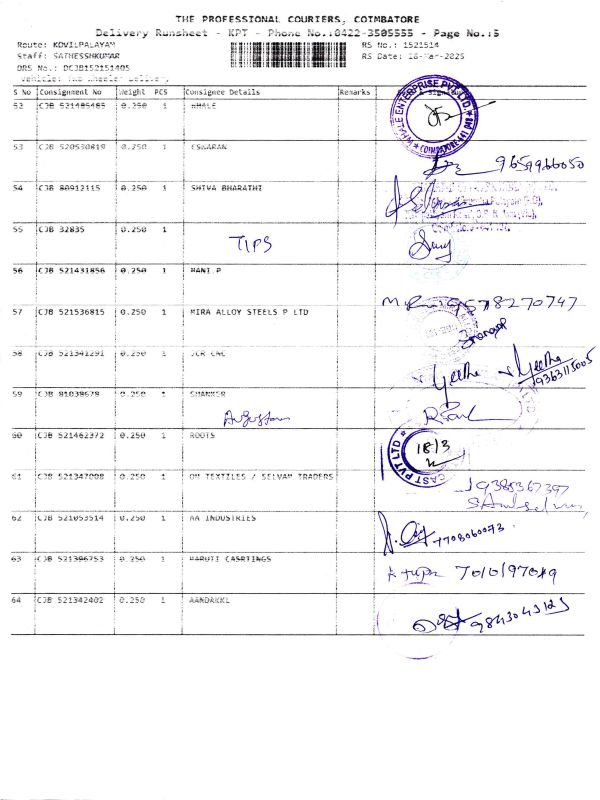 THE PROFESSIONAL COURIERS, COIMBATORE
Delivery Runsheet - KPT - Phone No.:0422-3505555 - Page No.:5
Route: KOVILPALAYAM RS No.: 1521514
Staff: SATHESSHKUMAR RS Date: 18-Mar-2025
DRS No.: DCJB152151405
Vehicle: Two Wheeler Delivery
S No Consignment No Weight PCS Consignee Details Remarks
52 CJB 531485485 0.250 1 WHALE
WHALE ENTERPRISE PVT LTD. COIMBATORE-641
53 CJB 520530819 0.250 1 ESWARAN
9659966050
54 CJB 80912115 0.250 1 SHIVA BHARATHI
55 CJB 32835 0.250 1
TIPS
56 CJB 521431856 0.250 1 MANI.P
9578270747
57 CJB 521536815 0.250 1 MIRA ALLOY STEELS P LTD
58 CJB 521341291 0.250 1 JCR CNC
Geetha Geetha
9363115005
59 CJB 81038678 0.250 1 SHANKER
60 CJB 521462372 0.250 1 ROOTS
18/3
CAST PVT LTD
61 CJB 521347008 0.250 1 OM TEXTILES / SELVAM TRADERS
9385367397
62 CJB 521053514 0.250 1 AA INDUSTRIES
7708060073
63 CJB 521396753 0.250 1 MARUTI CASRTINGS
64 CJB 521342402 0.250 1 AANDAKKL